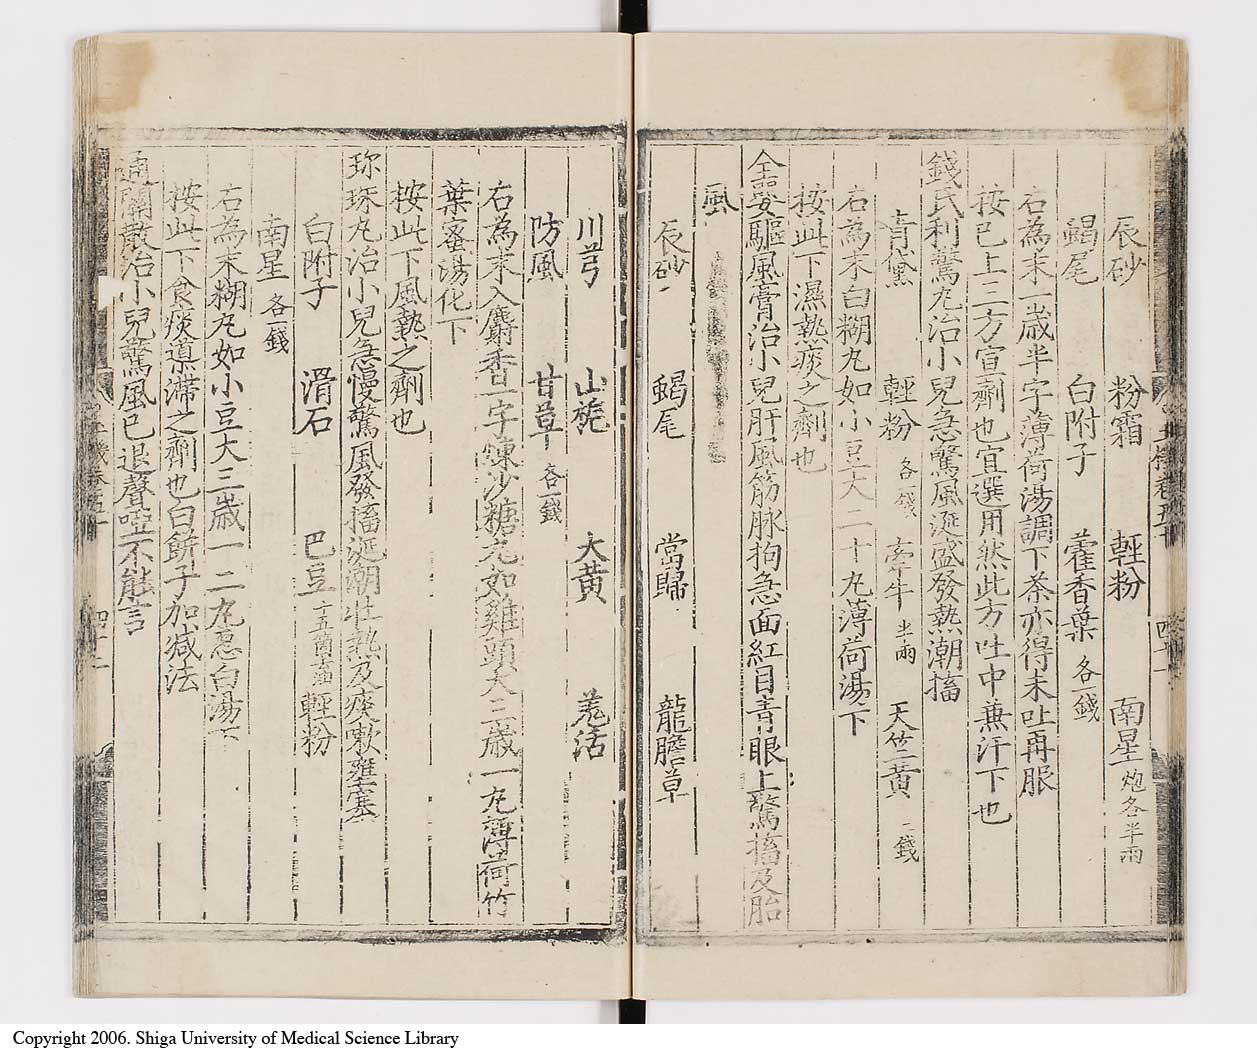 辰砂 粉霜 輕粉 南星炮各半兩
蝎尾 白附子 藿香葉各一錢
右為末一歲半字薄荷湯調下茶亦得未吐再服
按已上二方宣劑也宜選用然此方吐中兼汗下也
錢氏利驚丸治小兒急驚風涎盛發熱潮搐
青黛 輕粉各一錢 牽牛半兩 天竺黃二錢
右為末白糊丸如小豆大二十丸薄荷湯下
按此下濕熱痰之劑也
全嬰驅風膏治小兒肝風筋脉拘急面紅目青眼上驚搐及胎
風
辰砂 蝎尾 當歸 龍膽草
川芎 山梔 大黃 羗活
防風 甘草各一錢
右為末入麝香一字煉沙糖丸如雞頭大三歲一丸薄荷竹
葉蜜湯化下
按此下風熱之劑也
珎珠丸治小兒急慢驚風發搐涎潮壯熱及痰嗽壅塞
白附子 滑石 巴豆十五箇去油 輕粉
南星各一錢
右為末糊丸如小豆大三歲一二丸蔥白湯下
按此下食痰積滯之劑也白餅子加減法
通關散治小兒驚風已退聲啞不能言
四十一
四十二
Copyright 2006. Shiga University of Medical Science Library